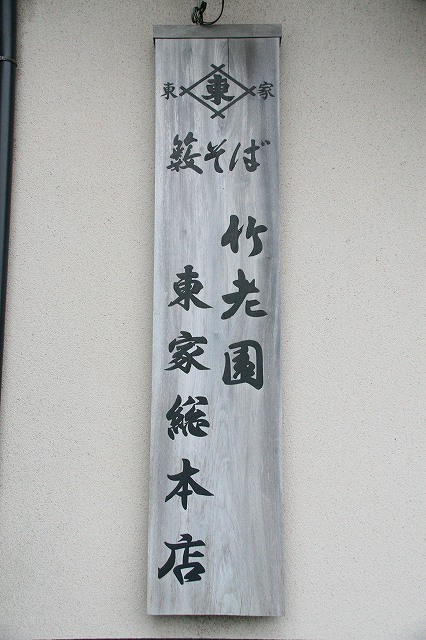 東 東 家
籔そば
竹老園
東家総本店